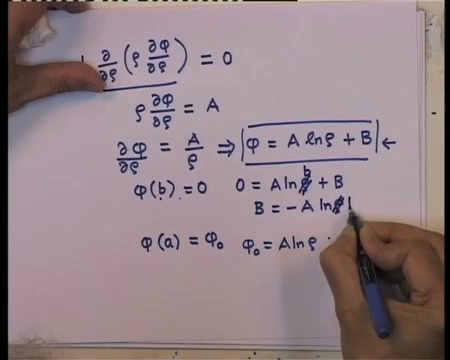 ∂/∂ρ (ρ ∂φ/∂ρ) = 0
ρ ∂φ/∂ρ = A
∂φ/∂ρ = A/ρ ⇒ |φ = A ln ρ + B| ←
φ(b) = 0   0 = A ln b + B
B = − A ln
φ(a) = φ₀   φ₀ = A ln ρ